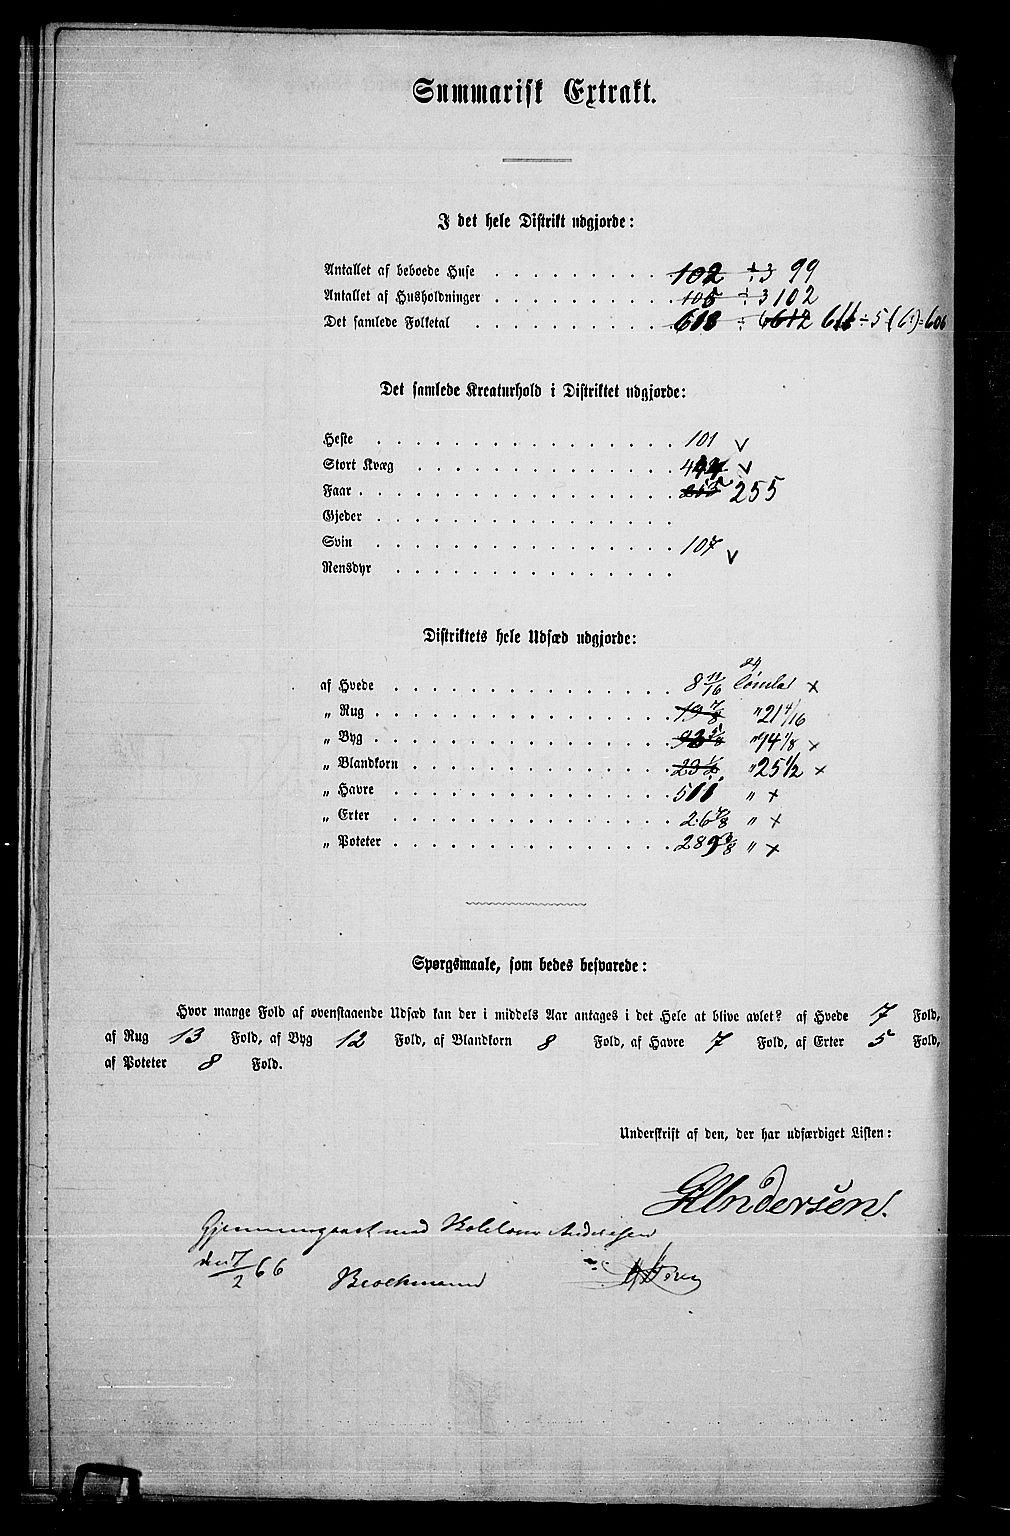 Summarisk Extrakt.
I det hele Distrikt udgjorde:
Antallet af beboede Huse . . . . . . . . 102 ÷ 3 99
Antallet af Husholdninger . . . . . . . . 105 ÷ 3 102
Det samlede Folketal . . . . . . . . . 618 ÷ 6 612 611 ÷ 5 (6?) = 606
Det samlede Kreaturhold i Distriktet udgjorde:
Heste . . . . . . . . . . . . . 101 v
Stort Kvæg . . . . . . . . . . . v
Faar . . . . . . . . . . . . . . 255
Gjeder . . . . . . . . . . . . .
Svin . . . . . . . . . . . . . 107 v
Rensdyr . . . . . . . . . . . .
Distriktets hele Udsæd udgjorde:
af Hvede . . . . . . . . . . . . 8 11/16 Tønder x
„ Rug . . . . . . . . . . . . . 19 7/8 " 21 4/16
„ Byg . . . . . . . . . . . . . " 94 1/8 x
„ Blandkorn . . . . . . . . . . . 23 1/2 " 25 1/2 x
„ Havre . . . . . . . . . . . . 511 " x
„ Erter . . . . . . . . . . . . 26 7/8 " x
„ Poteter . . . . . . . . . . . . " x
Spørgsmaale, som bedes besvarede:
Hvor mange Fold af ovenstaaende Udsæd kan der i middels Aar antages i det Hele at blive avlet? af Hvede 7 Fold,
af Rug 13 Fold, af Byg 12 Fold, af Blandkorn 8 Fold, af Havre 7 Fold, af Erter 5 Fold,
af Poteter 8 Fold.
Underskrift af den, der har udfærdiget Listen:
Andersen.
Gjennemgaaet med Andersen
den 7/2 66
Brockmann